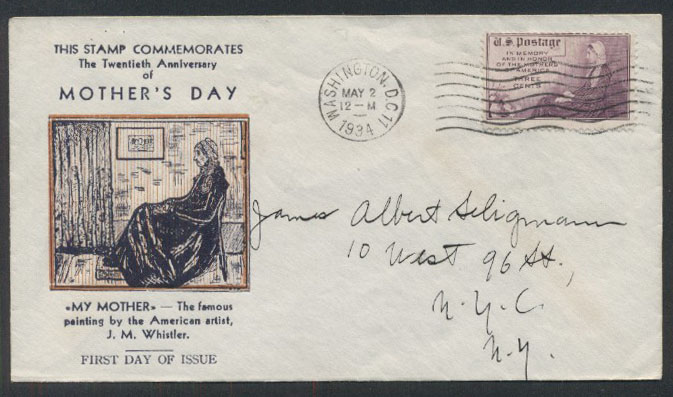 THIS STAMP COMMEMORATES
The Twentieth Anniversary
of
MOTHER'S DAY
«MY MOTHER» — The famous
painting by the American artist,
J. M. Whistler.
FIRST DAY OF ISSUE
WASHINGTON, D.C. 11
MAY 2
12-M
1934
U.S. Postage
IN MEMORY
AND IN HONOR
OF THE MOTHERS
OF AMERICA
THREE
CENTS
James Albert Seligmann
10 West 96 St.,
N.Y.C.
N.Y.